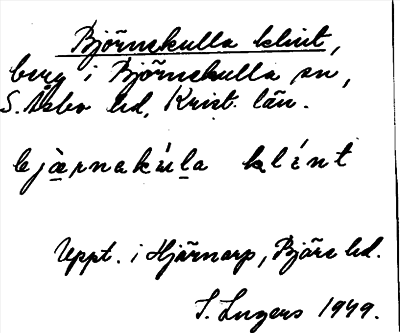 Björnekulla klint,
berg i Björnekulla sn,
S. Åsbo hd, Krist. län.
bjàrnakúla klínt
Uppt. i Hjärnarp, Bjäre hd.
I. Ingers 1949.